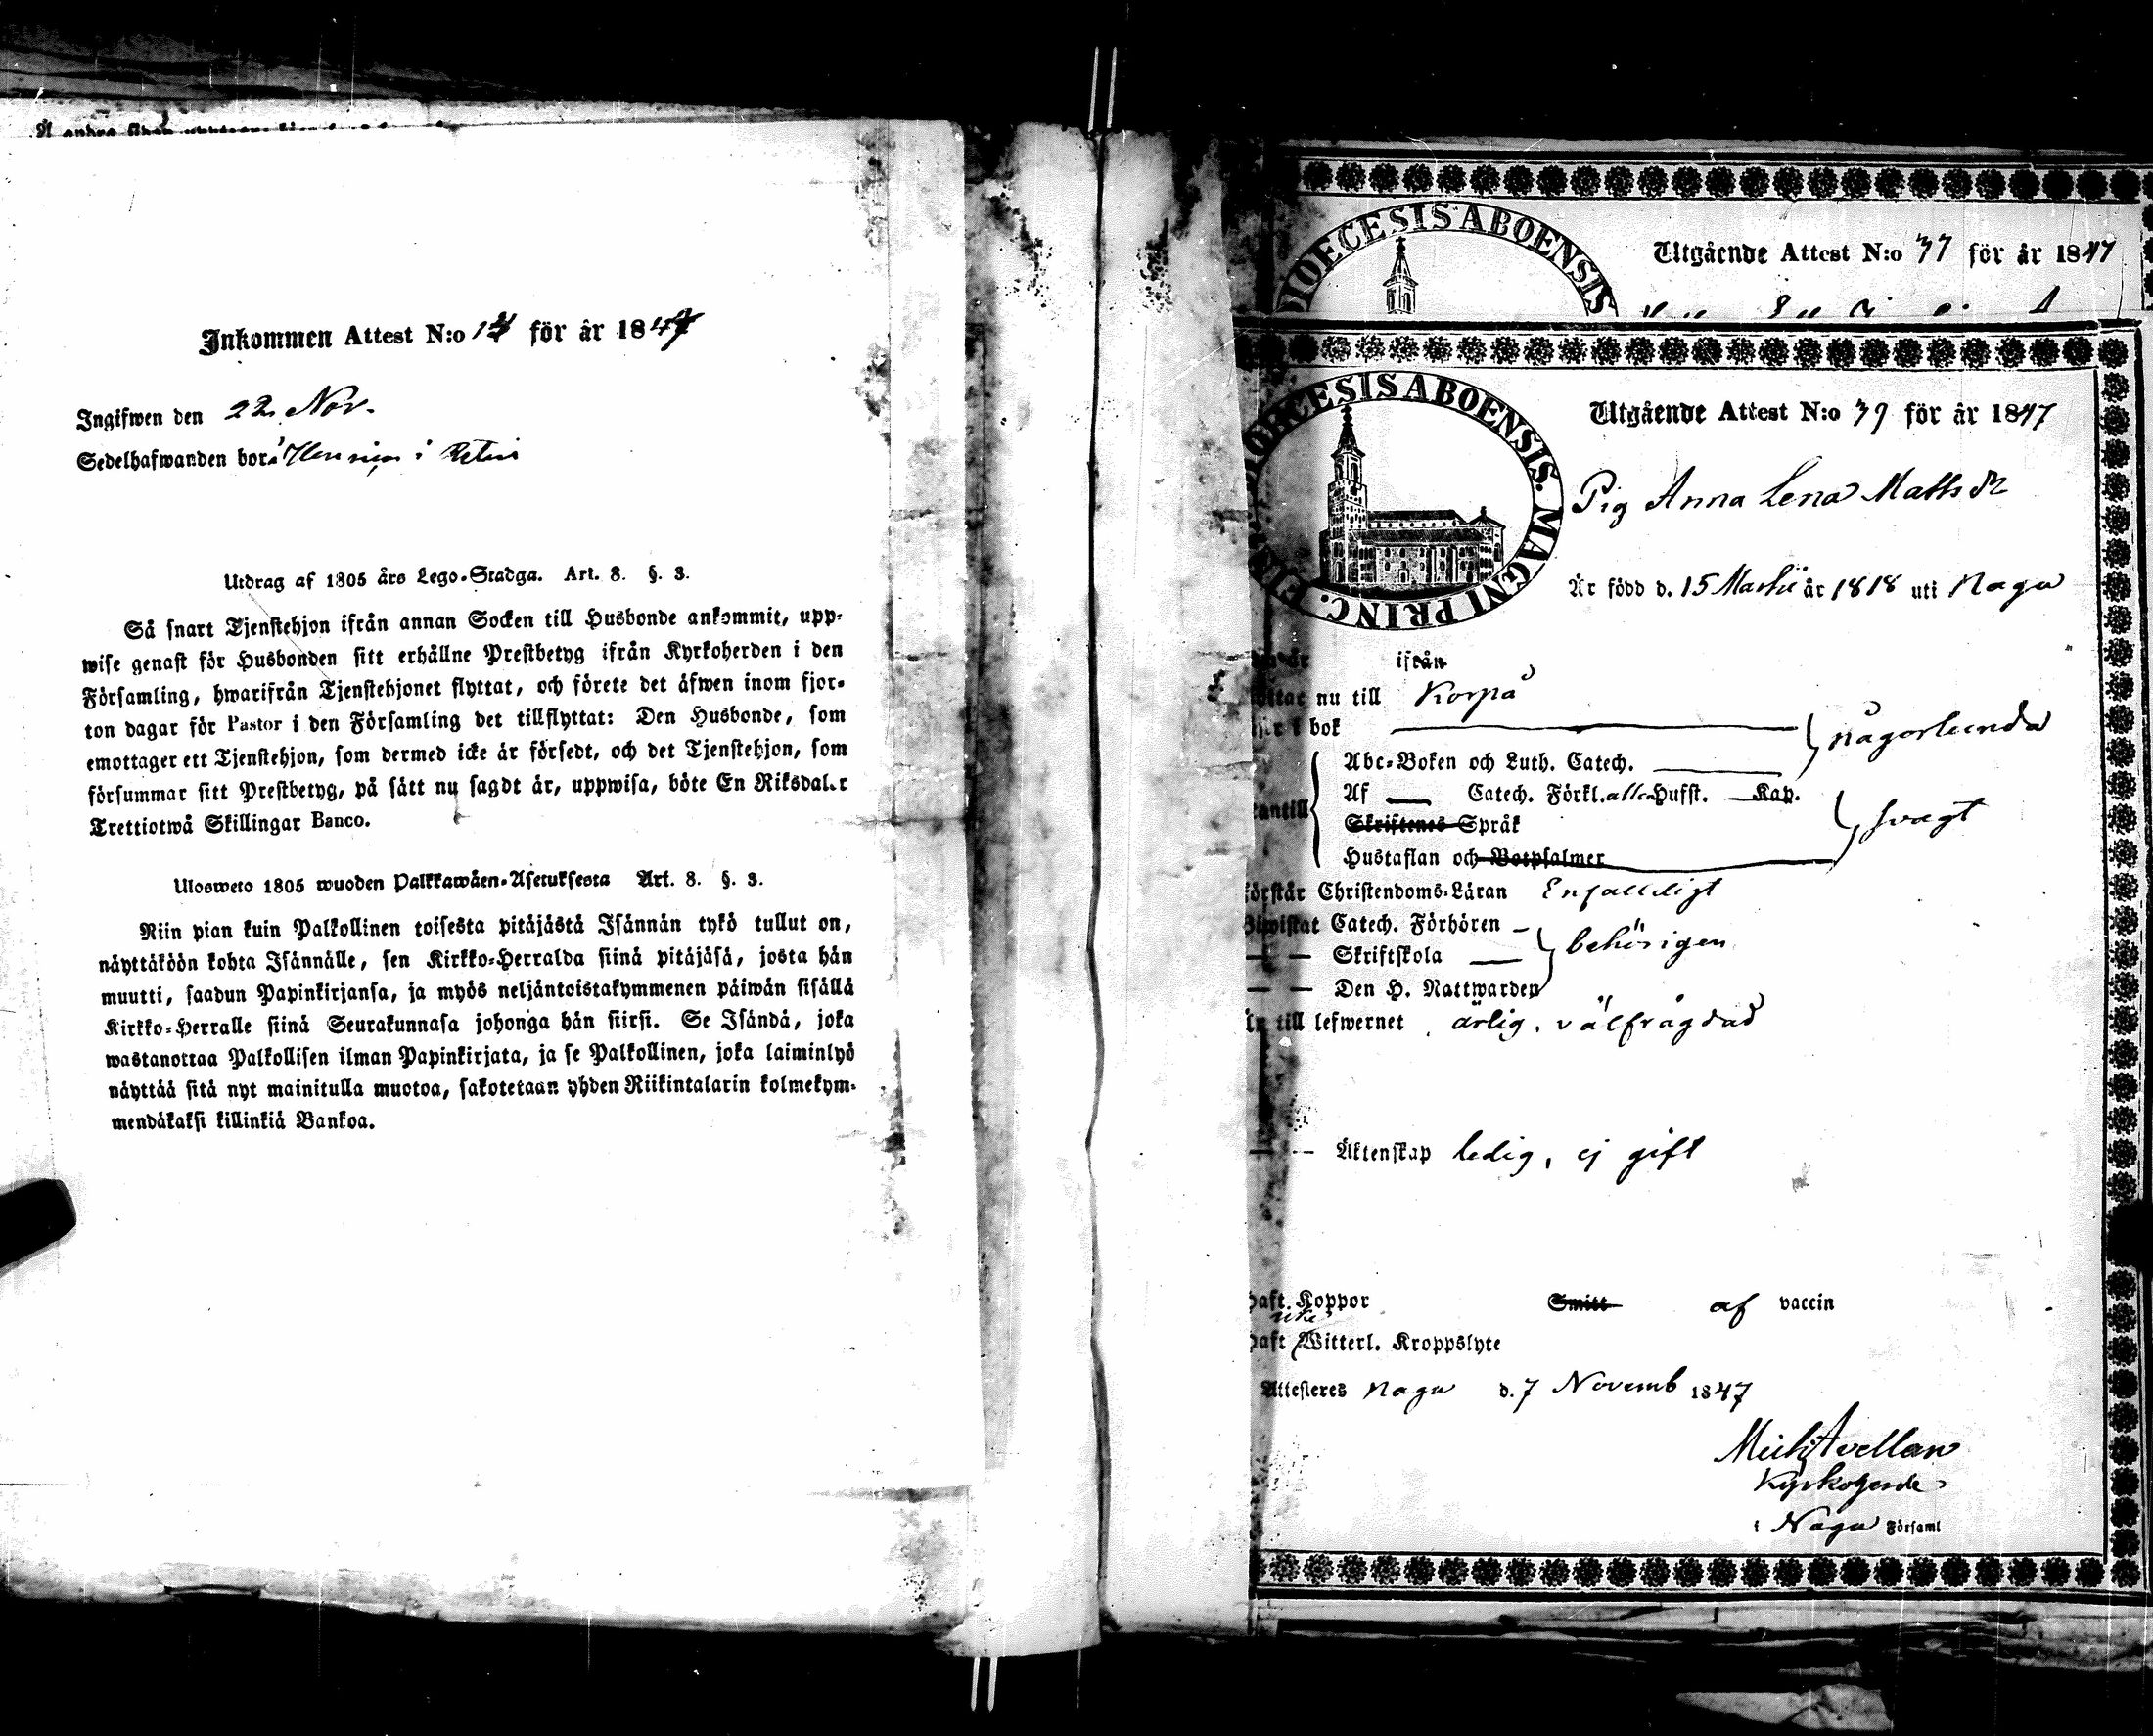 Inkommen Attest N:o 13 för år 1847
Ingifwen den 22 Nov.
Sedelhafwanden bor i
Utdrag af 1805 års Lego-Stadga. Art. 8. §. 3.
Så snart Tjenstehjon ifrån annan Socken till Husbonde ankommit, upp-
wise genast för Husbonden sitt erhållne Prestbetyg ifrån Kyrkoherden i den
Församling, hwarifrån Tjenstehjonet flyttat, och förete det äfwen inom fjor-
ton dagar för Pastor i den Församling det tillflyttat: Den Husbonde, som
emottager ett Tjenstehjon, som dermed icke är försedt, och det Tjenstehjon, som
försummar sitt Prestbetyg, på sätt nu sagdt är, uppwisa, böte En Riksdaler
Trettiotwå Skillingar Banco.
Ulosweto 1805 wuoden Palkkawäen-Asetuksesta Art. 8. §. 3.
Niin pian kuin Palkollinen toisesta pitäjästä Isännän tykö tullut on,
näyttäköön kohta Isännälle, sen Kirkko-Herralda siinä pitäjäsä, josta hän
muutti, saadun Papinkirjansa, ja myös neljäntoistakymmenen päiwän sisällä
Kirkko-Herralle siinä Seurakunnasa johonga hän siirsi. Se Isändä, joka
wastanottaa Palkollisen ilman Papinkirjata, ja se Palkollinen, joka laiminlyö
näyttää sitä nyt mainitulla muotoa, sakotetaan yhden Riikintalarin kolmekym-
mendäkaksi killinkiä Bankoa.
DIOECESIS ABOENSIS
Utgående Attest N:o 37 för år 1847
DIOECESIS ABOENSIS. MAGNI PRINC. FIN
Utgående Attest N:o 39 för år 1847
Pig Anna Lena Matts dr
Är född d. 15 Martii år 1818 uti Nagu
ifrån
nu till Korpo
i bok någorlunda
Abc-Boken och Luth. Catech.
Af Catech. Förkl. allen Husst. Kap.
Skriftenes Språk svagt
Hustaflan och Botpsalmer
förstår Christendoms-Läran Enfalldigt
Biwistat Catech. Förhören
Skriftskola behörigen
Den H. Nattwarden
till lefwernet ärlig, välfrägdad
Äktenskap ledig, ej gift
haft Koppor Smitt af vaccin
haft icke Witterl. Kroppslyte
Attesteres Nagu d. 7 Novemb 1847
Mich Avellan
Kyrkoherde
i Nagu Församl